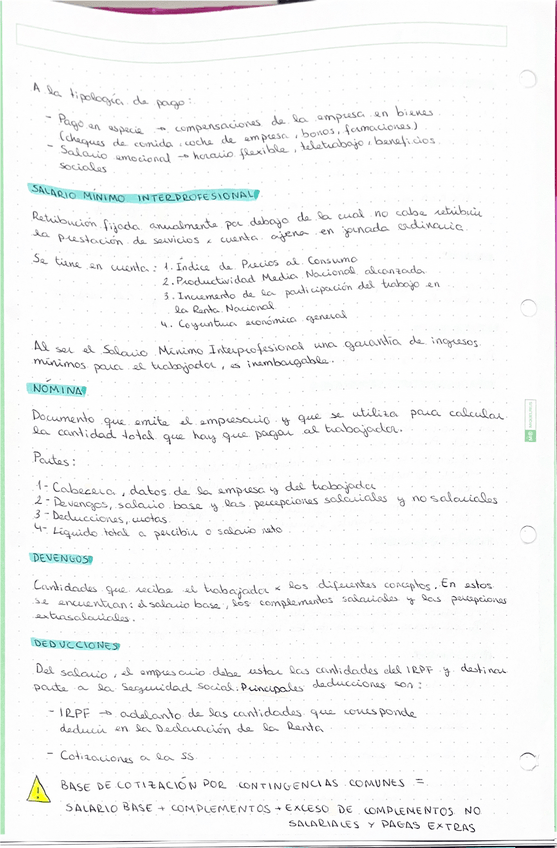 A la tipología de pago:
- Pago en especie → compensaciones de la empresa en bienes
(cheques de comida, coche de empresa, bonos, formaciones)
- Salario emocional → horario flexible, teletrabajo, beneficios
sociales
SALARIO MÍNIMO INTERPROFESIONAL
Retribución fijada anualmente por debajo de la cual no cabe retribuir
la prestación de servicios x cuenta ajena en jornada ordinaria.
Se tiene en cuenta: 1. Índice de Precios al Consumo
2. Productividad Media Nacional alcanzada
3. Incremento de la participación del trabajo en
la Renta Nacional
4. Coyuntura económica general
Al ser el Salario Mínimo Interprofesional una garantía de ingresos
mínimos para el trabajador, es inembargable.
NÓMINA
Documento que emite el empresario y que se utiliza para calcular
la cantidad total que hay que pagar al trabajador.
Partes:
1- Cabecera, datos de la empresa y del trabajador
2- Devengos, salario base y las percepciones salariales y no salariales
3- Deducciones,
4- Líquido total a percibir o salario neto
DEVENGOS
Cantidades que recibe el trabajador x los diferentes conceptos. En estos
se encuentran: el salario base, los complementos salariales y las percepciones
extrasalariales.
DEDUCCIONES
Del salario, el empresario debe restar las cantidades del IRPF y destinar
parte a la Seguridad Social. Principales deducciones son:
- IRPF → adelanto de las cantidades que corresponde
deducir en la Declaración de la Renta
- Cotizaciones a la SS.
BASE DE COTIZACIÓN POR CONTINGENCIAS COMUNES =
SALARIO BASE + COMPLEMENTOS + EXCESO DE COMPLEMENTOS NO
SALARIALES Y PAGAS EXTRAS